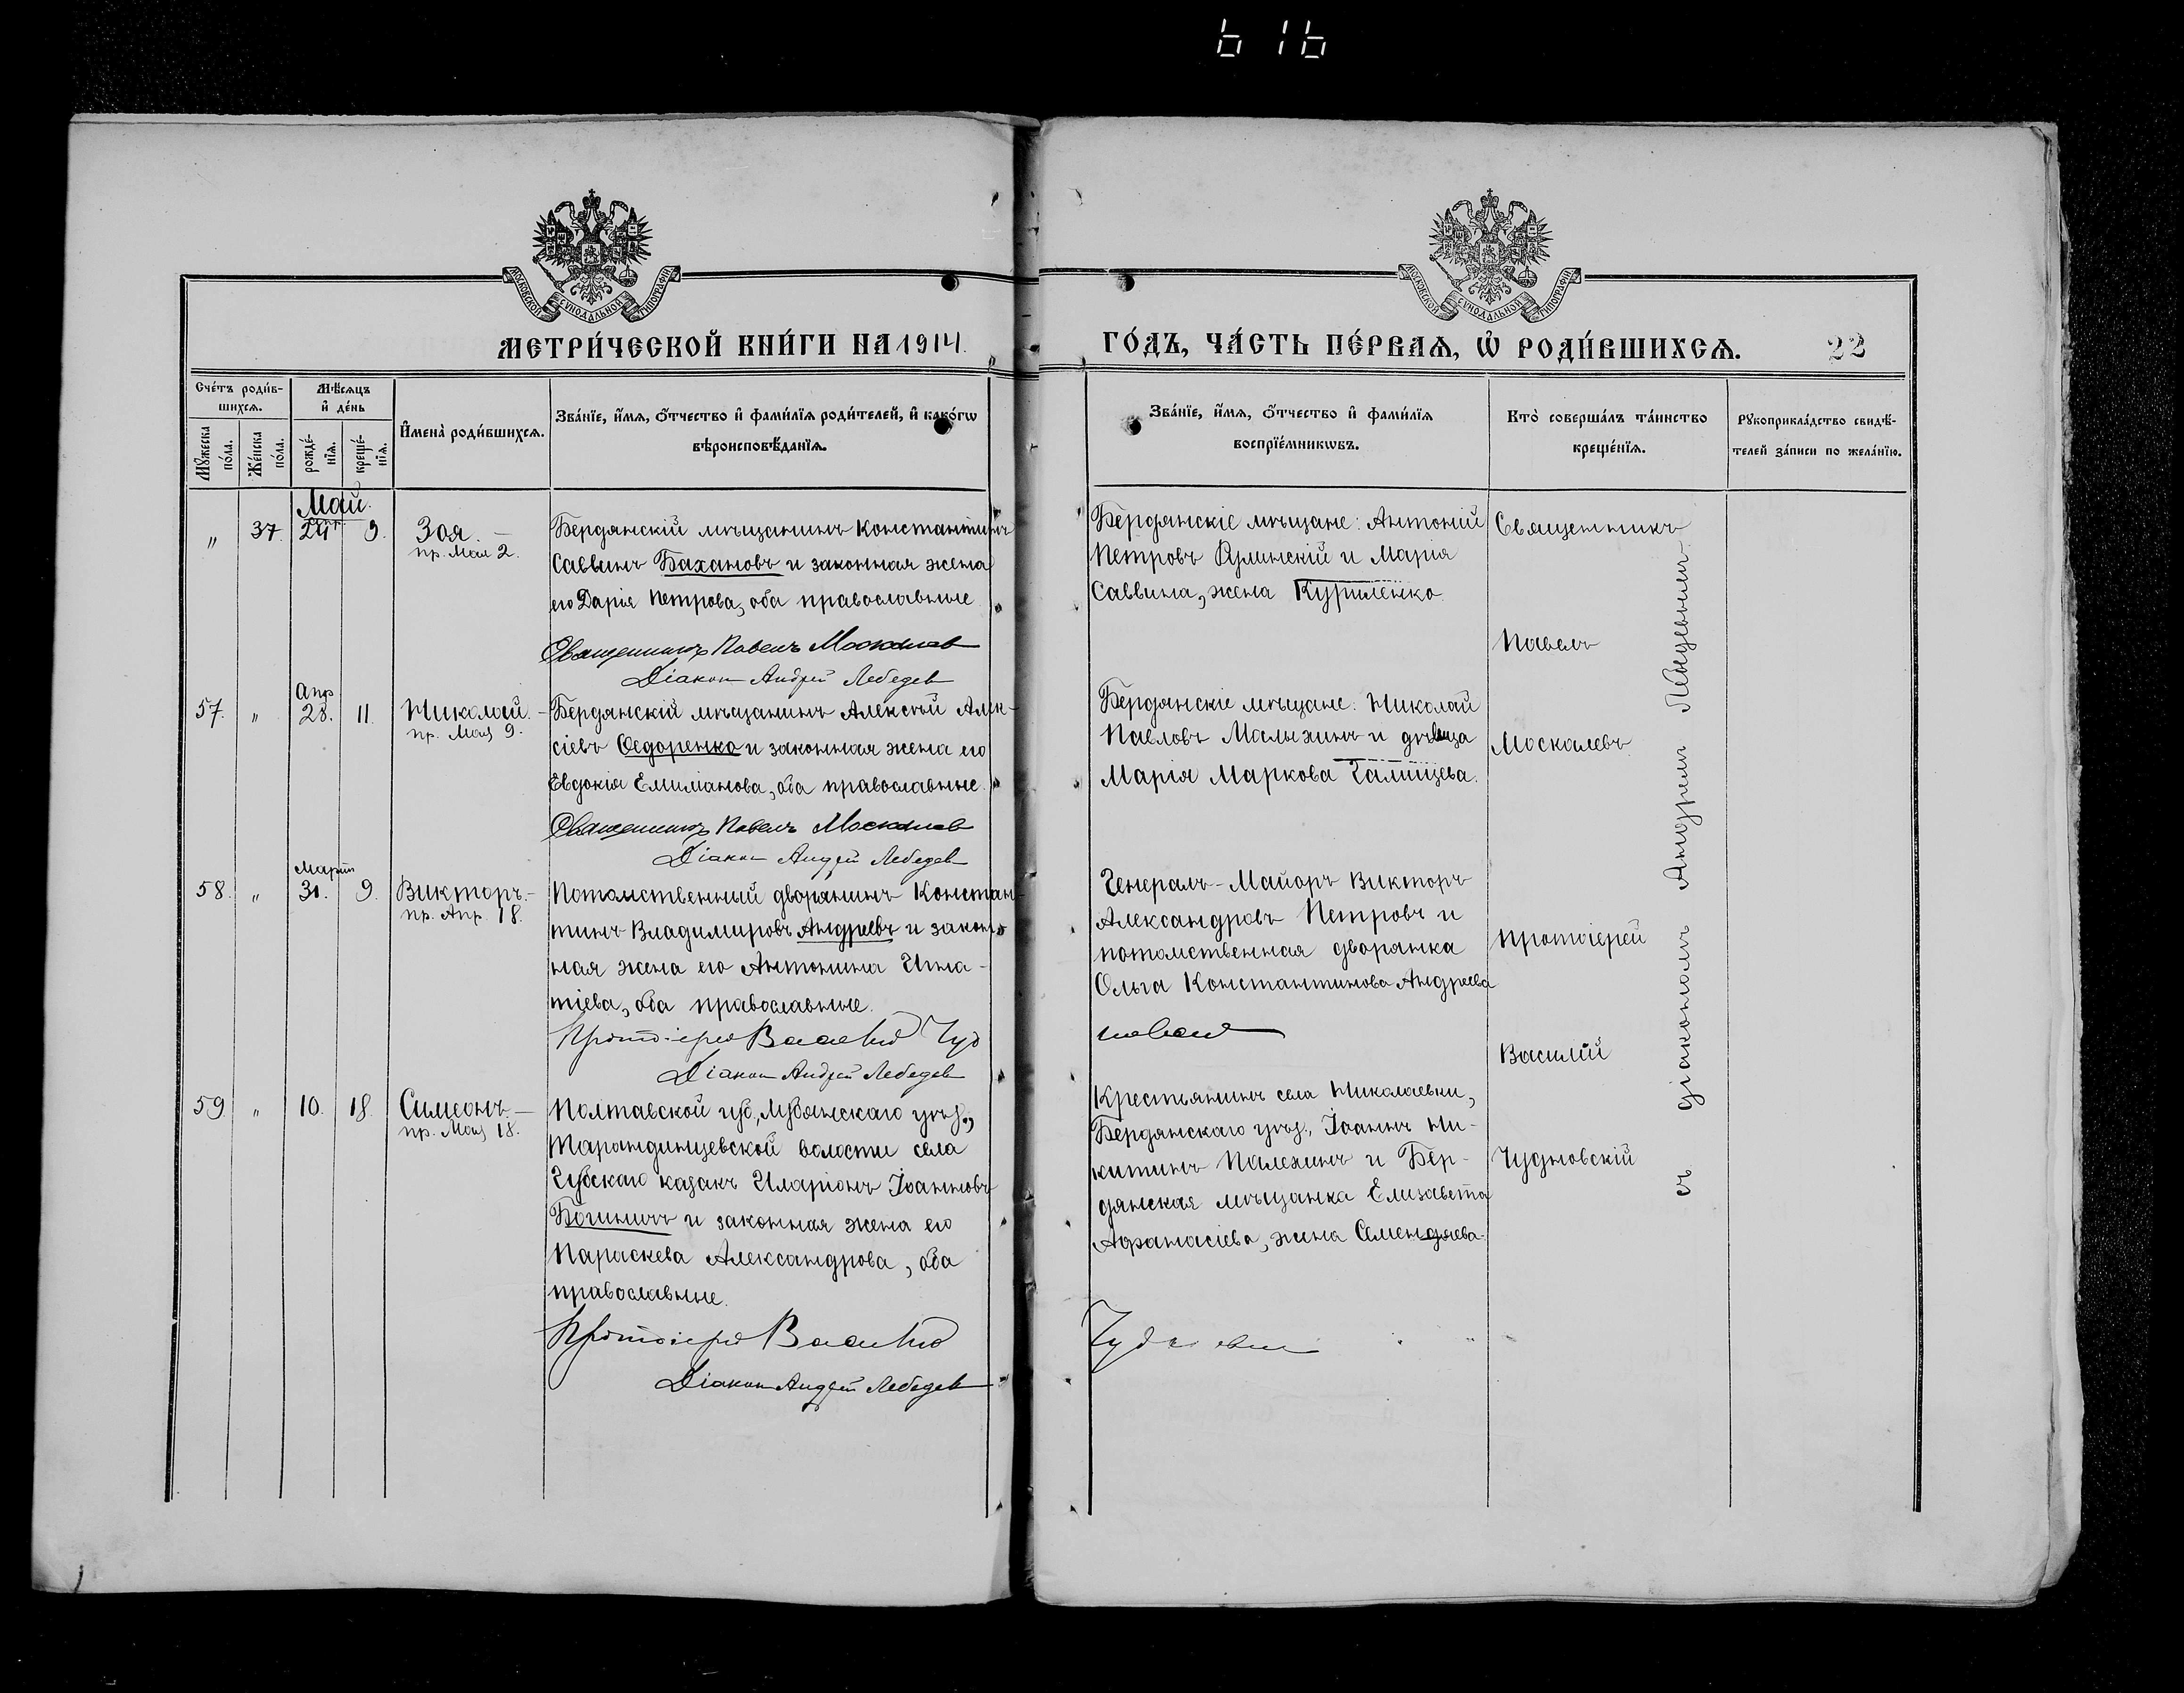 616
МОСКОВСКОЙ СУНОДАЛЬНОЙ ТИПОГРАФІИ
МОСКОВСКОЙ СУНОДАЛЬНОЙ ТИПОГРАФІИ
МЕТРИ́ЧЕСКОЙ КНИ́ГИ НА 1914.
ГО́ДЪ, ЧА́СТЬ ПЕ́РВАѦ, Ѡ҆ РОДИ́ВШИХСѦ.
22
Сче́тъ роди́в-
шихсѧ.
Мꙋ́жеска
по́ла.
Же́нска
по́ла.
Мѣ́сѧцъ
и҆ де́нь
рожде́-
нїѧ.
креще́-
нїѧ.
И҆мена̀ роди́вшихсѧ.
Зва́нїе, и҆́мѧ, ѻ҆́тчество и҆ фами́лїѧ роди́телей, и҆ како́гѡ
вѣроисповѣ́данїѧ.
Зва́нїе, и҆́мѧ, ѻ҆́тчество и҆ фами́лїѧ
воспрїе́мникѡвъ.
Кто̀ соверша́лъ та́инство
креще́нїѧ.
Рꙋкоприкла́дство свидѣ́-
телей за́писи по жела́нїю.
Май.
„ 37. 9. Зоя. –
пр. Мая 2.
Бердянскій мѣщанинъ Константинъ
Саввинъ Бахановъ и законная жена
его Дарія Петрова, оба православные
Священникъ Павелъ Москалев
Діакон Андрей Лебедев
Бердянскіе мѣщане: Антоній
Петровъ и Марія
Саввина, жена Куриленко
Священникъ
Павелъ
Апр
57. „ 28. 11. Николай. –
пр. Мая 9.
Бердянскій мѣщанинъ Алексѣй Алек-
сіевъ Ѳедоренко и законная жена его
Евдокія Емиліанова, оба православные.
Священникъ Павелъ Москалев
Діакон Андрей Лебедев
Бердянскіе мѣщане: Николай
Павловъ Малыхинъ и дѣвица
Марія Маркова Галищева.
Москалевъ
Мартъ
58. „ 31. 9. Викторъ. –
пр. Апр. 18.
Потомственный дворянинъ Констан-
тинъ Владимировъ Андреевъ и закон-
ная жена его Антонина Игна-
тіева, оба православные.
Протоіерей Василій Чуд
Діакон Андрей Лебедев
Генералъ-Майоръ Викторъ
Александровъ Петровъ и
потомственная дворянка
Ольга Константинова Андреева
новскій
Протоіерей
Василій
59 „ 10. 18. Симеонъ. –
пр. Мая 18.
Полтавской губ., Лубянскаго уѣз.,
Тарандинцевской волости села
Губскаго казакъ Иларіонъ Іоанновъ
и законная жена его
Параскева Александрова, оба
православные.
Протоіерей Василій
Діакон Андрей Лебедев
Крестьянинъ села Николаевки,
Бердянскаго уѣз., Іоаннъ Ни-
китинъ Палехинъ и Бер-
дянская мѣщанка Елизавета
Аѳанасіева, жена Семендяева.
Чудновскій
Чудновскій
съ діакономъ Андреемъ Лебедевымъ